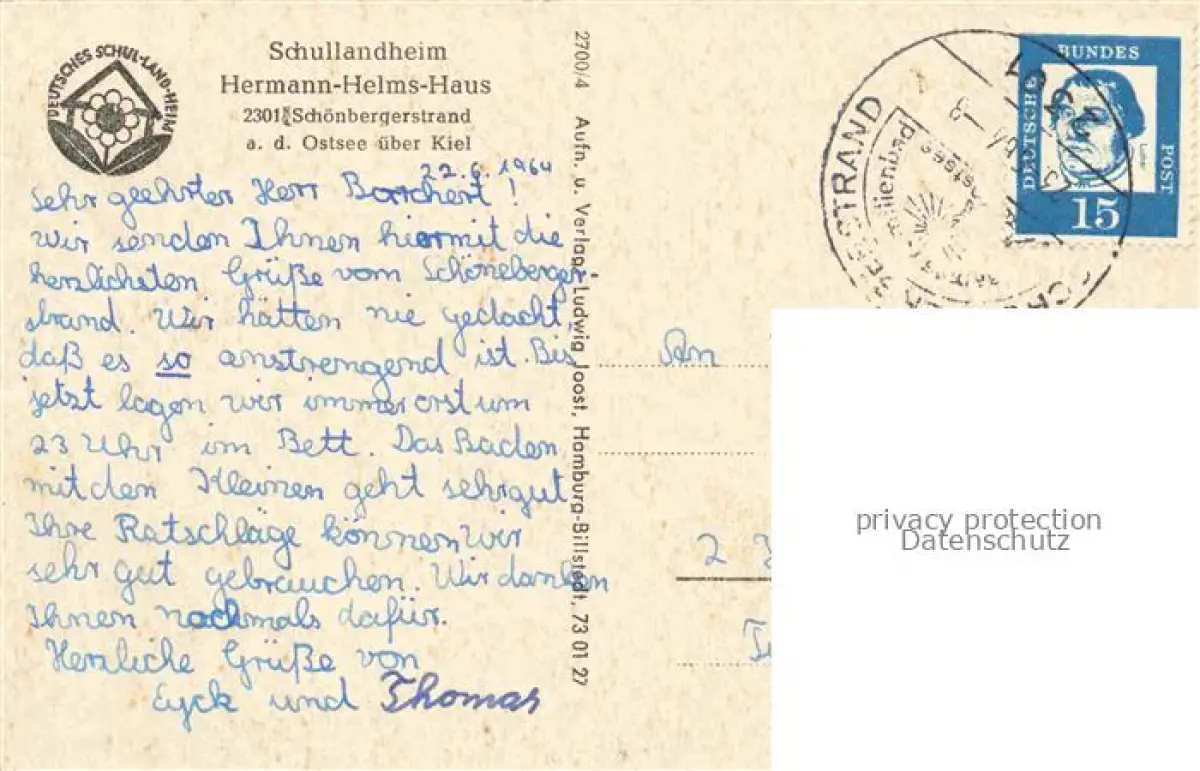 DEUTSCHES SCHUL-LAND-HEIM
Schullandheim
Hermann-Helms-Haus
2301 Schönbergerstrand
a. d. Ostsee über Kiel
22.6.1964
Sehr geehrter Herr Borchert!
Wir senden Ihnen hiermit die
herzlichsten Grüße vom Schöneberger-
strand. Wir hätten nie gedacht,
daß es so anstrengend ist. Bis
jetzt lagen wir immer erst um
23 Uhr im Bett. Das Baden
mit den Kleinen geht sehr gut
Ihre Ratschläge können wir
sehr gut gebrauchen. Wir danken
Ihnen nochmals dafür.
Herzliche Grüße von
Eyck und Thomas
2700/4 Aufn. u. Verlag Ludwig Joost, Hamburg-Billstedt, 73 01 27
DEUTSCHE BUNDES POST
Luther
15
An
2
privacy protection
Datenschutz